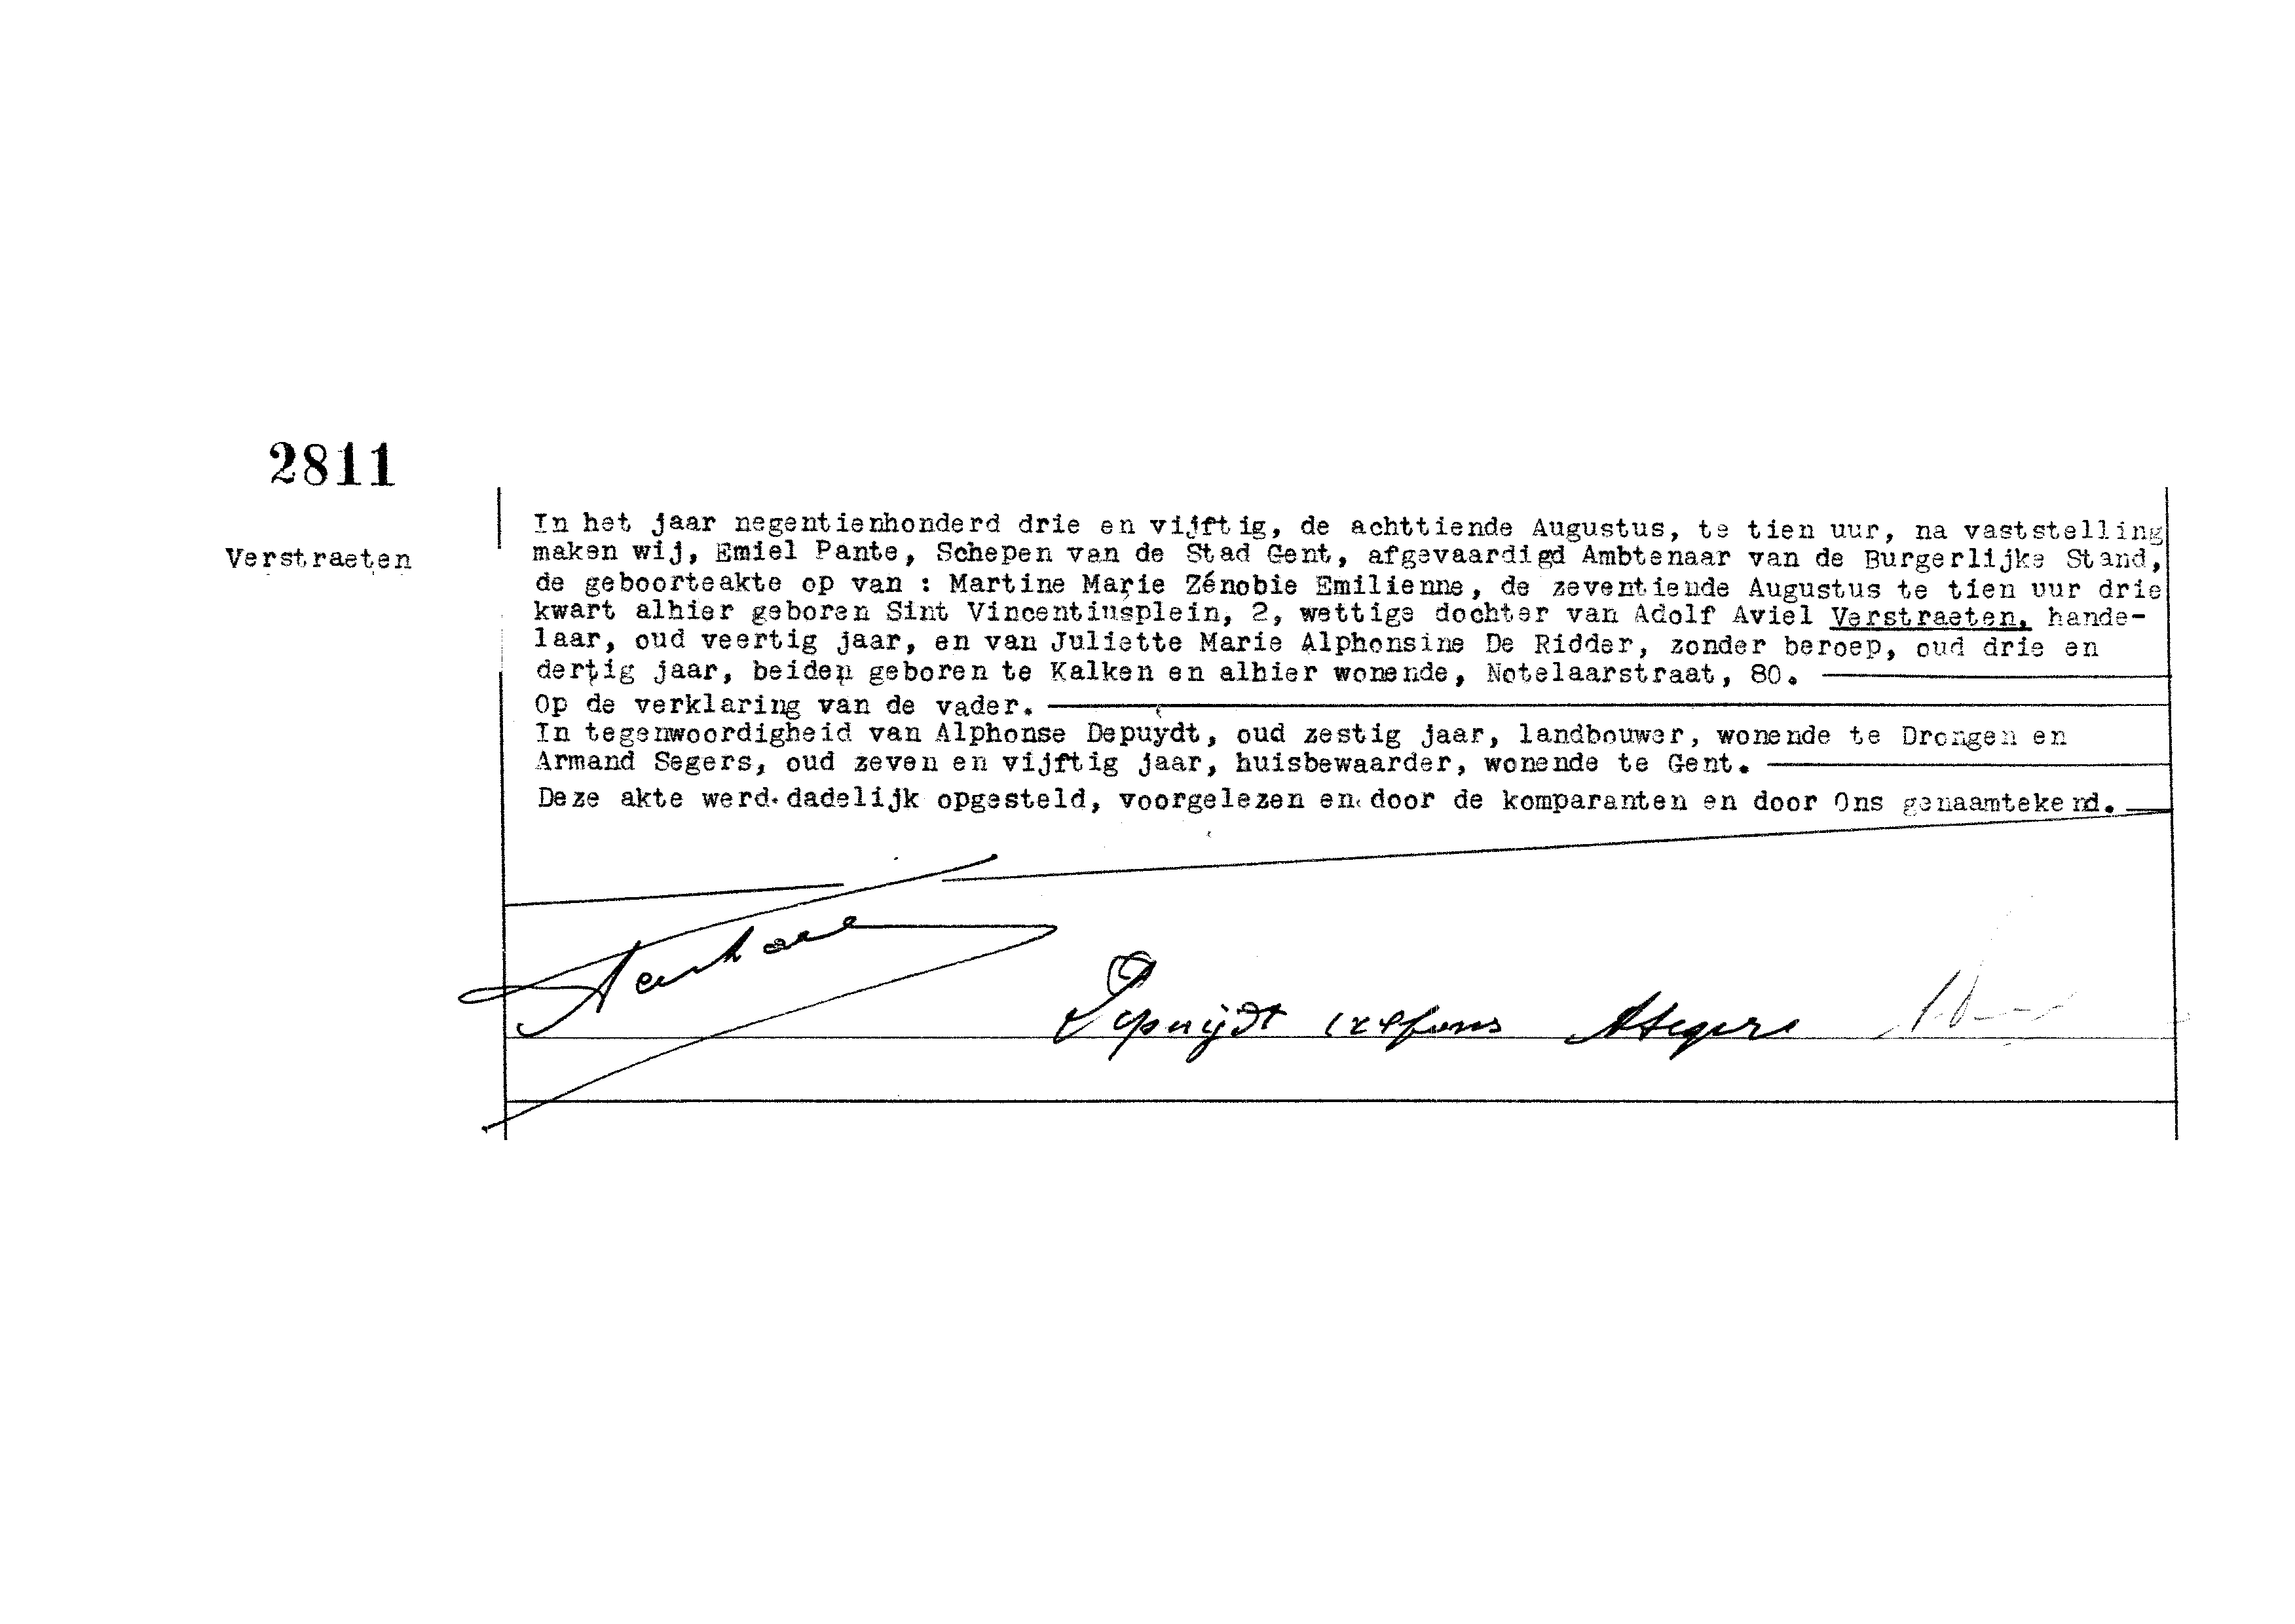 2811
Verstraeten
In het jaar negentienhonderd drie en vijftig, de achttiende Augustus, te tien uur, na vaststelling
maken wij, Emiel Pante, Schepen van de Stad Gent, afgevaardigd Ambtenaar van de Burgerlijke Stand,
de geboorteakte op van : Martine Marie Zénobie Emilienne, de zeventiende Augustus te tien uur drie
kwart alhier geboren Sint Vincentiusplein, 2, wettige dochter van Adolf Aviel Verstraeten, hande-
laar, oud veertig jaar, en van Juliette Marie Alphonsine De Ridder, zonder beroep, oud drie en
dertig jaar, beiden geboren te Kalken en alhier wonende, Notelaarstraat, 80.
Op de verklaring van de vader.
In tegenwoordigheid van Alphonse Depuydt, oud zestig jaar, landbouwer, wonende te Drongen en
Armand Segers, oud zeven en vijftig jaar, huisbewaarder, wonende te Gent.
Deze akte werd dadelijk opgesteld, voorgelezen en door de komparanten en door Ons genaamtekend.
Depuijdt Alfons ASegers